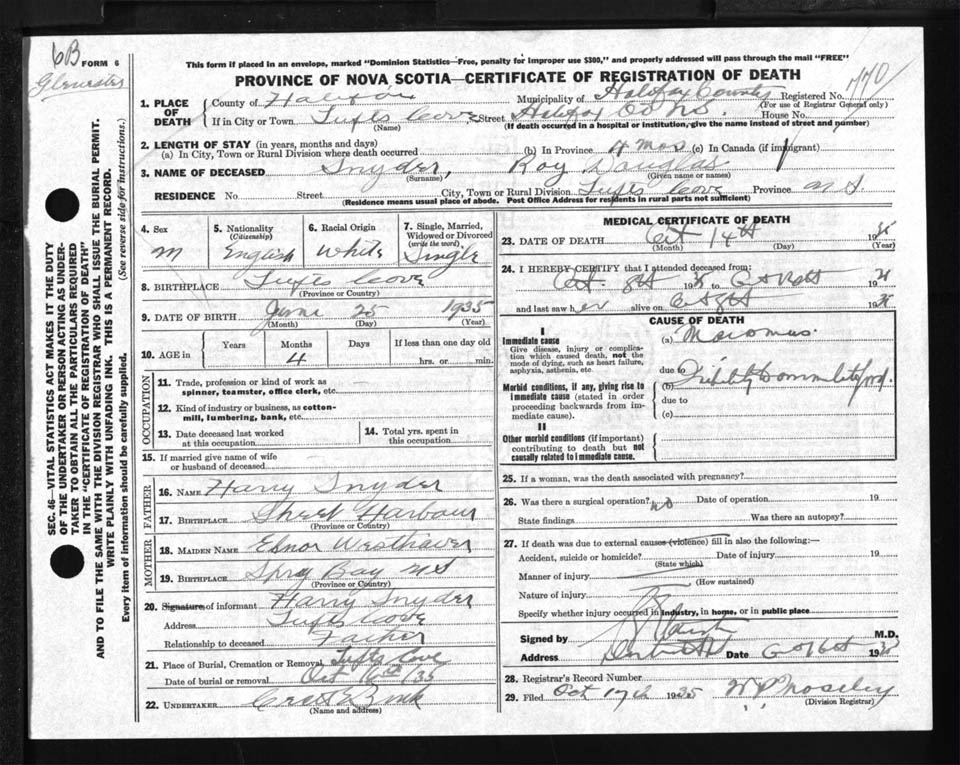 6B FORM 6
Gloucester
This form if placed in an envelope, marked "Dominion Statistics—Free, penalty for improper use $300," and properly addressed will pass through the mail "FREE"
PROVINCE OF NOVA SCOTIA—CERTIFICATE OF REGISTRATION OF DEATH
770
1. PLACE OF DEATH
County of Halifax Municipality of Halifax County Registered No.
(For use of Registrar General only)
If in City or Town Tufts Cove Street Halifax Co N.S. House No.
(Name) (If death occurred in a hospital or institution, give the name instead of street and number)
2. LENGTH OF STAY (in years, months and days)
(a) In City, Town or Rural Division where death occurred (b) In Province 4 mos (c) In Canada (if immigrant)
3. NAME OF DECEASED Snyder, Roy Douglas
(Surname) (Given name or names)
RESIDENCE No. Street City, Town or Rural Division Tufts Cove Province N.S.
(Residence means usual place of abode. Post Office Address for residents in rural parts not sufficient)
4. Sex M
5. Nationality (Citizenship) English
6. Racial Origin White
7. Single, Married, Widowed or Divorced (write the word) Single
8. BIRTHPLACE Tufts Cove
(Province or Country)
9. DATE OF BIRTH June 25 1935
(Month) (Day) (Year)
10. AGE in Years Months 4 Days If less than one day old hrs. or min.
OCCUPATION
11. Trade, profession or kind of work as spinner, teamster, office clerk, etc.
12. Kind of industry or business, as cotton-mill, lumbering, bank, etc.
13. Date deceased last worked at this occupation
14. Total yrs. spent in this occupation
15. If married give name of wife or husband of deceased
FATHER
16. NAME Harry Snyder
17. BIRTHPLACE Sheet Harbour
(Province or Country)
MOTHER
18. MAIDEN NAME Elsnor Westhaver
19. BIRTHPLACE Spry Bay NS
(Province or Country)
20. Signature of informant Harry Snyder
Address Tufts Cove
Relationship to deceased Father
21. Place of Burial, Cremation or Removal Tufts Cove
Date of burial or removal Oct 16th/35
22. UNDERTAKER
(Name and address)
MEDICAL CERTIFICATE OF DEATH
23. DATE OF DEATH Oct 14th 19
(Month) (Day) (Year)
24. I HEREBY CERTIFY that I attended deceased from:
Oct 8th 19 Oct 19
and last saw her alive on Oct 8th 19
CAUSE OF DEATH
I
Immediate cause
Give disease, injury or complication which caused death, not the mode of dying, such as heart failure, asphyxia, asthenia, etc.
(a)
due to
Morbid conditions, if any, giving rise to immediate cause (stated in order proceeding backwards from immediate cause).
(b)
due to
(c)
II
Other morbid conditions (if important) contributing to death but not causally related to immediate cause.
25. If a woman, was the death associated with pregnancy?
26. Was there a surgical operation? no Date of operation 19
State findings Was there an autopsy?
27. If death was due to external causes (violence) fill in also the following:—
Accident, suicide or homicide? Date of injury 19
(State which)
Manner of injury
(How sustained)
Nature of injury
Specify whether injury occurred in industry, in home, or in public place
Signed by M.D.
Address Date Oct 19
28. Registrar's Record Number
29. Filed Oct 17th 1935
(Division Registrar)
SEC. 46—VITAL STATISTICS ACT MAKES IT THE DUTY
OF THE UNDERTAKER OR PERSON ACTING AS UNDER-
TAKER TO OBTAIN ALL THE PARTICULARS REQUIRED
IN THE "CERTIFICATE OF REGISTRATION OF DEATH"
AND TO FILE THE SAME WITH THE DIVISION REGISTRAR WHO SHALL ISSUE THE BURIAL PERMIT.
WRITE PLAINLY WITH UNFADING INK. THIS IS A PERMANENT RECORD.
Every item of information should be carefully supplied. (See reverse side for instructions.)